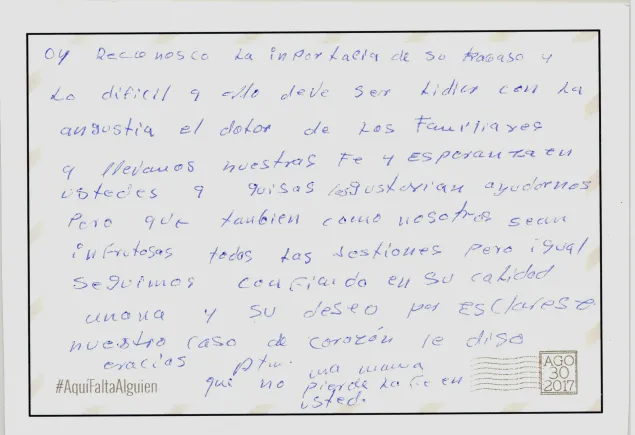 oy Reconosco La inportacia de su trabaso y
Lo dificil q ello deve ser Lidiar con La
angustia el dolor de Los Familiares
q llevamos nuestras Fe y Esperanza en
ustedes q quisas les gustarian ayudarnos
Pero que tanbien como nosotros sean
infrutosas todas Las Jestiones pero igual
Seguimos confiando en su calidad
umana y su deseo por Esclareser
nuestro caso de corazón le digo
gracias Att. una mama
qui no pierde La Fe en
usted.
#AquíFaltaAlguien
AGO
30
2017